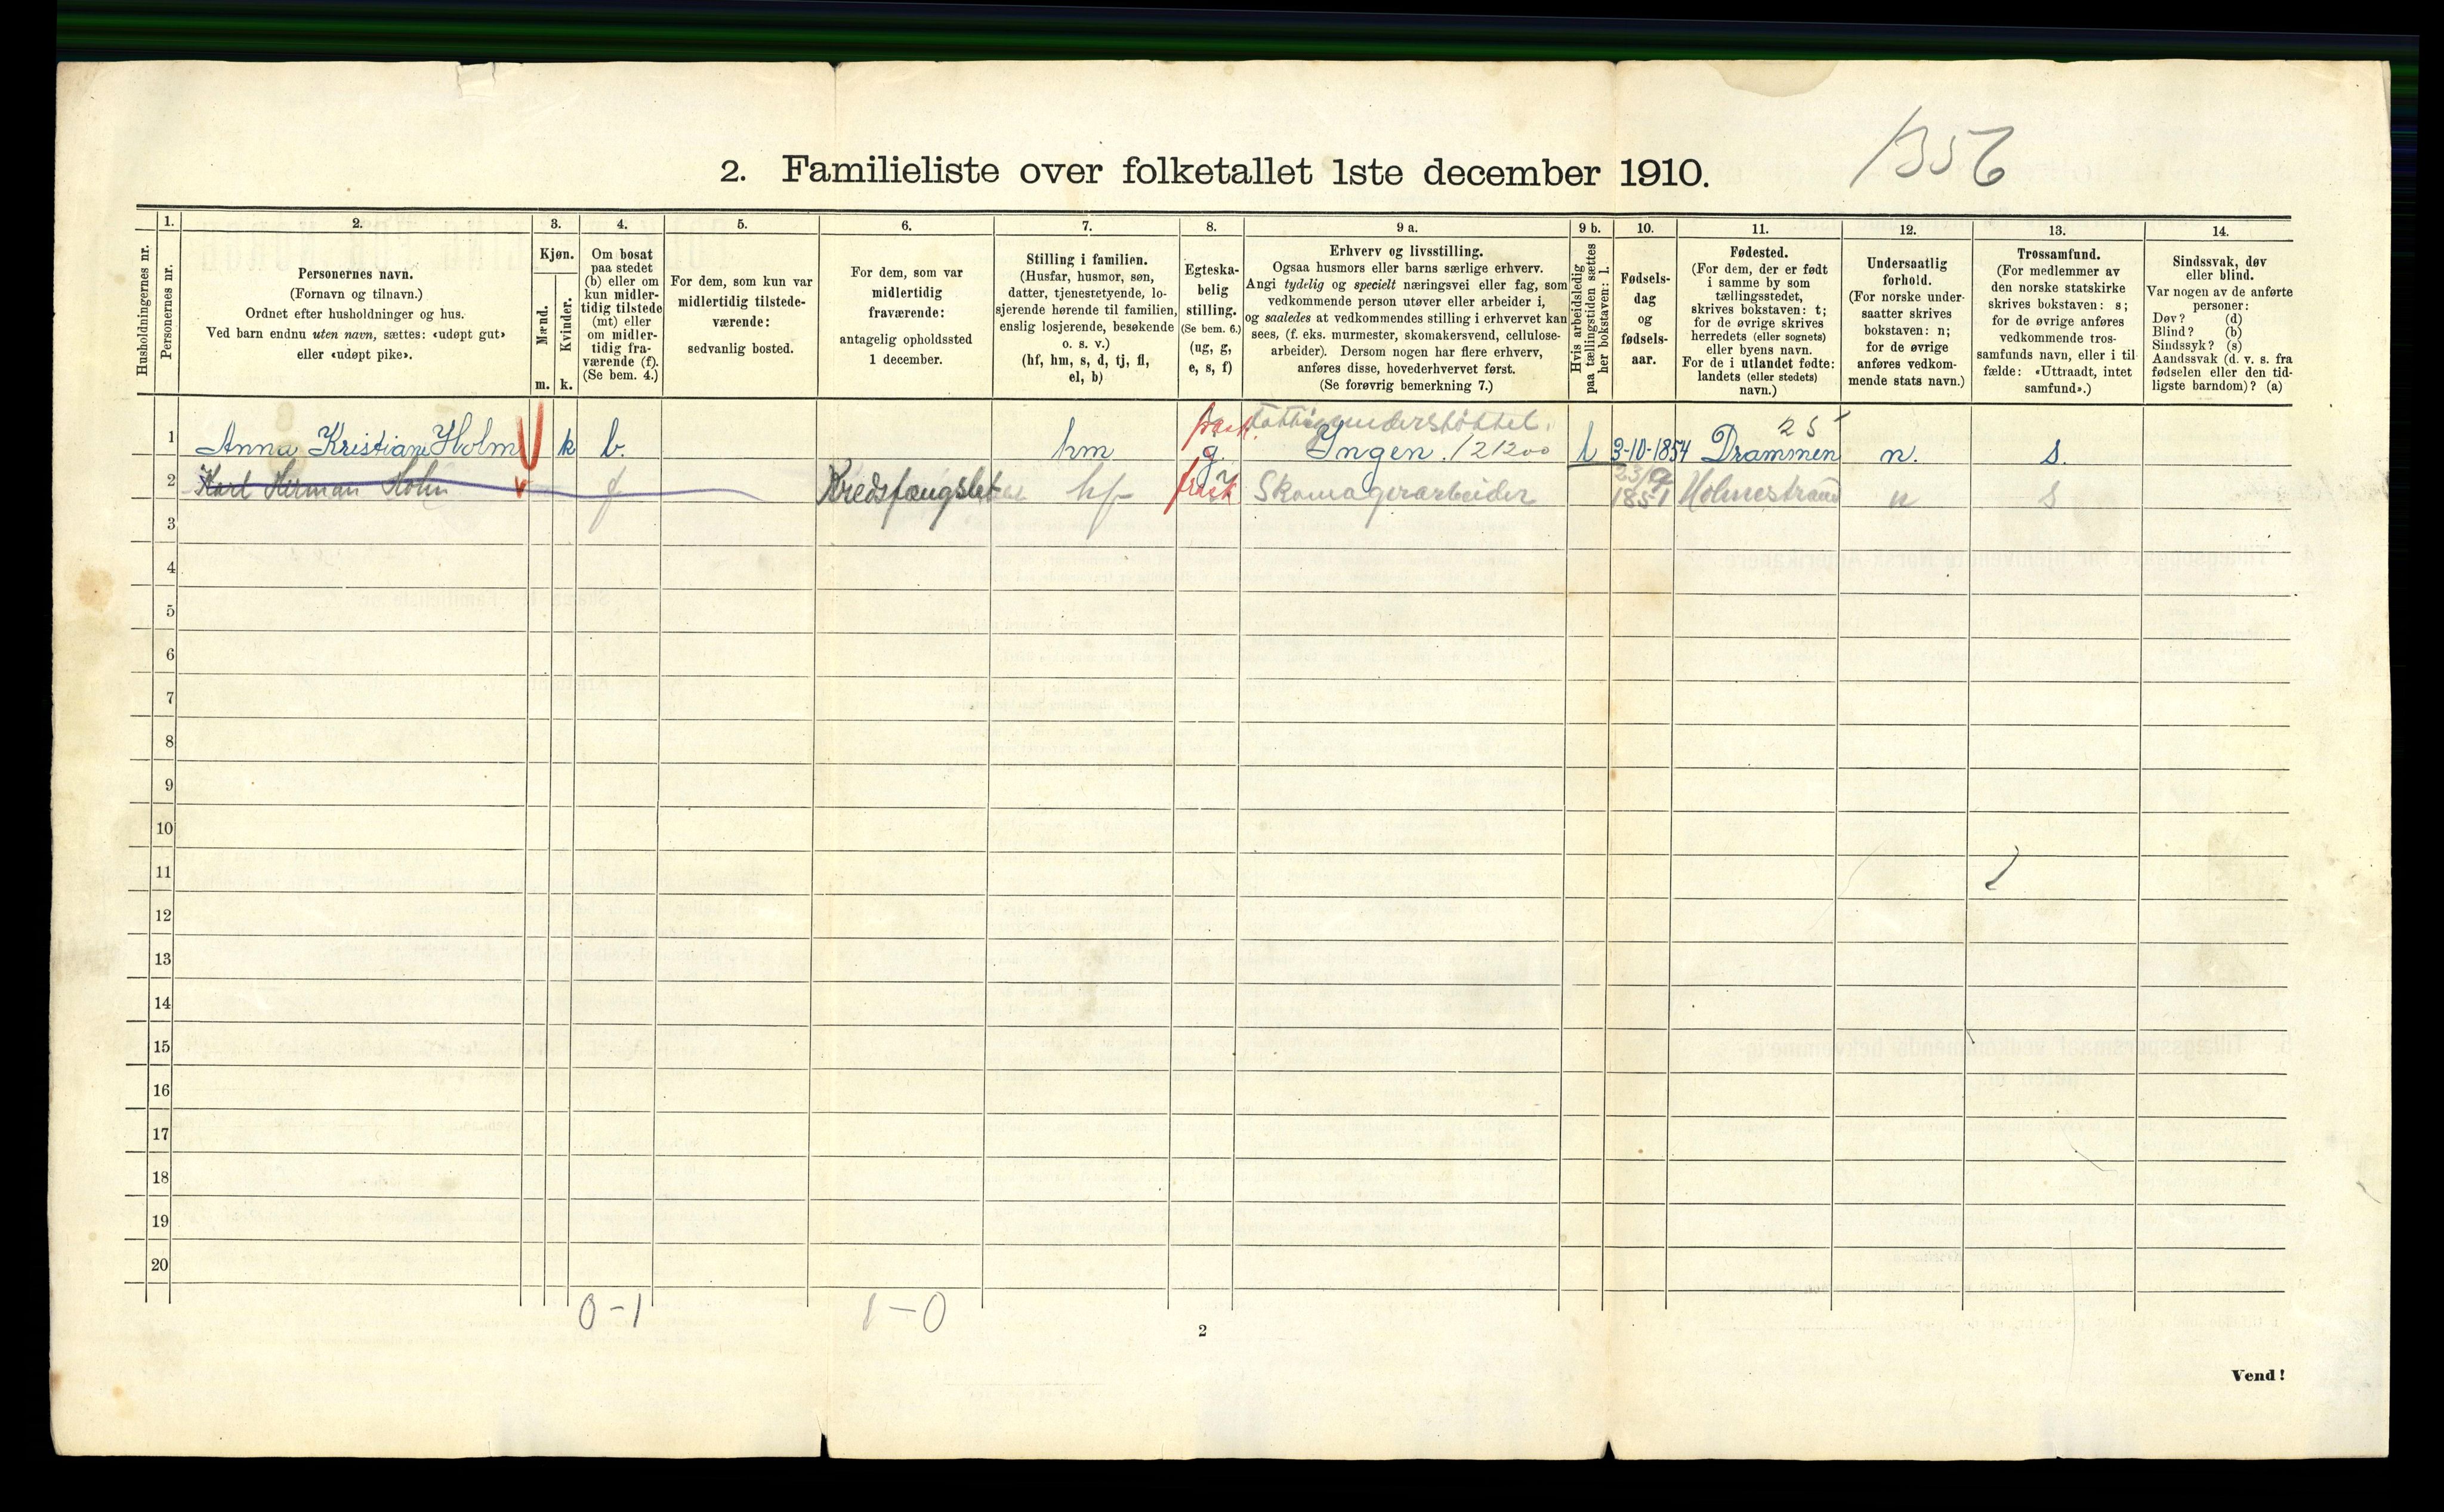 1356
2. Familieliste over folketallet 1ste december 1910.
Husholdningernes nr.
1.
Personernes nr.
2.
Personernes navn.
(Fornavn og tilnavn.)
Ordnet efter husholdninger og hus.
Ved barn endnu uten navn, sættes: «udøpt gut»
eller «udøpt pike».
3.
Kjøn.
Mænd.
m.
Kvinder.
k.
4.
Om bosat
paa stedet
(b) eller om
kun midler-
tidig tilstede
(mt) eller
om midler-
tidig fra-
værende (f).
(Se bem. 4.)
5.
For dem, som kun var
midlertidig tilstede-
værende:
sedvanlig bosted.
6.
For dem, som var
midlertidig
fraværende:
antagelig opholdssted
1 december.
7.
Stilling i familien.
(Husfar, husmor, søn,
datter, tjenestetyende, lo-
sjerende hørende til familien,
enslig losjerende, besøkende
o. s. v.)
(hf, hm, s, d, tj, fl,
el, b)
8.
Egteska-
belig
stilling.
(Se bem. 6.)
(ug, g,
e, s, f)
9 a.
Erhverv og livsstilling.
Ogsaa husmors eller barns særlige erhverv.
Angi tydelig og specielt næringsvei eller fag, som
vedkommende person utøver eller arbeider i,
og saaledes at vedkommendes stilling i erhvervet kan
sees, (f. eks. murmester, skomakersvend, cellulose-
arbeider). Dersom nogen har flere erhverv,
anføres disse, hovederhvervet først.
(Se forøvrig bemerkning 7.)
9 b.
Hvis arbeidsledig
paa tællingstiden sættes
her bokstaven: l.
10.
Fødsels-
dag
og
fødsels-
aar.
11.
Fødested.
(For dem, der er født
i samme by som
tællingsstedet,
skrives bokstaven: t;
for de øvrige skrives
herredets (eller sognets)
eller byens navn.
For de i utlandet fødte:
landets (eller stedets)
navn.)
12.
Undersaatlig
forhold.
(For norske under-
saatter skrives
bokstaven: n;
for de øvrige
anføres vedkom-
mende stats navn.)
13.
Trossamfund.
(For medlemmer av
den norske statskirke
skrives bokstaven: s;
for de øvrige anføres
vedkommende tros-
samfunds navn, eller i til-
fælde: «Uttraadt, intet
samfund».)
14.
Sindssvak, døv
eller blind.
Var nogen av de anførte
personer:
Døv? (d)
Blind? (b)
Sindssyk? (s)
Aandssvak (d. v. s. fra
fødselen eller den tid-
ligste barndom)? (a)
fattigunderstøttet. 25
1 Anna Kristiane Holm k b. hm g. Ingen. 121200 l 3-10-1854 Drammen n. s.
2 Karl Herman Holm f Kredsfængslet hf frask Skomagerarbeider 23/9 1851 Holmestrand n s
3
4
5
6
7
8
9
10
11
12
13
14
15
16
17
18
19
20
0-1 1-0
2
Vend!